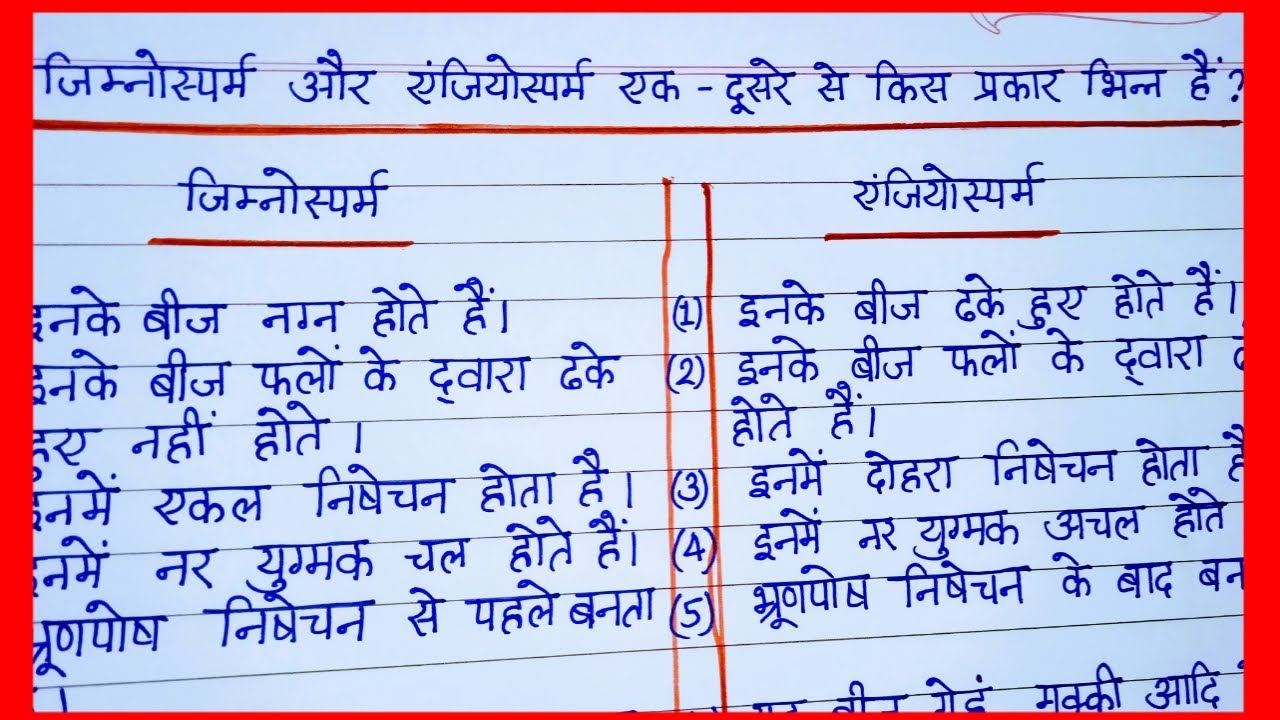 जिम्नोस्पर्म और एंजियोस्पर्म एक - दूसरे से किस प्रकार भिन्न हैं ?
जिम्नोस्पर्म
इनके बीज नग्न होते हैं।
इनके बीज फलों के द्वारा ढके
हुए नहीं होते ।
इनमें एकल निषेचन होता है।
इनमें नर युग्मक चल होते हैं।
भ्रूणपोष निषेचन से पहले बनता
एंजियोस्पर्म
(1) इनके बीज ढके हुए होते हैं।
(2) इनके बीज फलों के द्वारा
होते हैं।
(3) इनमें दोहरा निषेचन होता है
(4) इनमें नर युग्मक अचल होते
(5) भ्रूणपोष निषेचन के बाद बन
गेहूं मक्की आदि